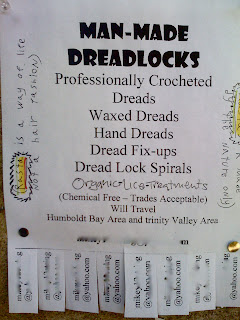 MAN-MADE
DREADLOCKS
Professionally Crocheted
Dreads
Waxed Dreads
Hand Dreads
Dread Fix-ups
Dread Lock Spirals
Organic Lice Treatments
(Chemical Free – Trades Acceptable)
Will Travel
Humboldt Bay Area and trinity Valley Area
is a way of life
NOT a hair fashion)
THE NATURE ONLY
@yahoo.com
@yahoo.com
@yahoo.com
@yahoo.com
@yahoo.com
@yahoo.com
@yahoo.com